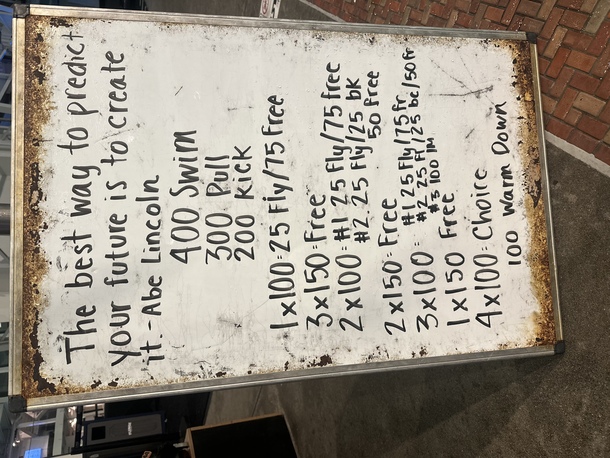 The best way to predict
your future is to create
it. - Abe Lincoln
400 Swim
300 Pull
200 Kick
1x100: 25 Fly/75 Free
3x150: Free
2x100: #1 25 Fly/75 free
#2 25 Fly/25 bk
50 free
2x150: Free
3x100: #1 25 Fly/75 fr
#2 25 Fl/25 bc/50 fr
#3 100 IM
1x150 Free
4x100: Choice
100 Warm Down